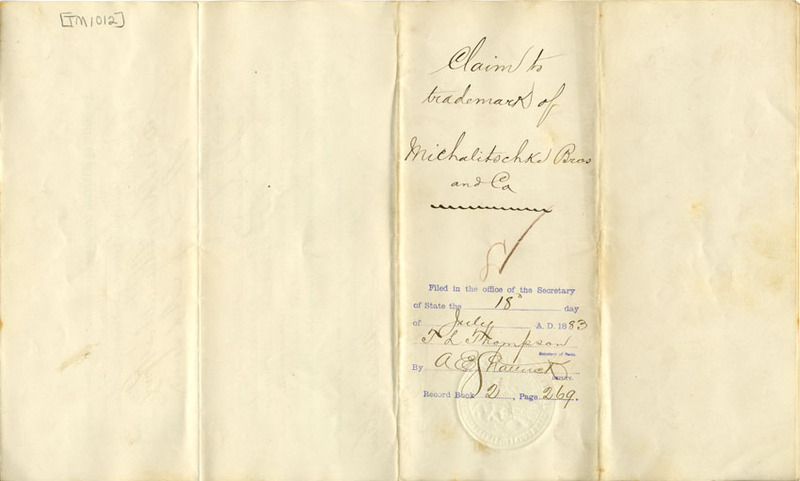 [TM1012]
Claim to
trademark of
Michalitschke Bros
and Co
Filed in the office of the Secretary
of State the 18th day
of July A. D. 1883
T L Thompson
Secretary of State.
By A E
DEPUTY.
Record Book 2, Page 269.